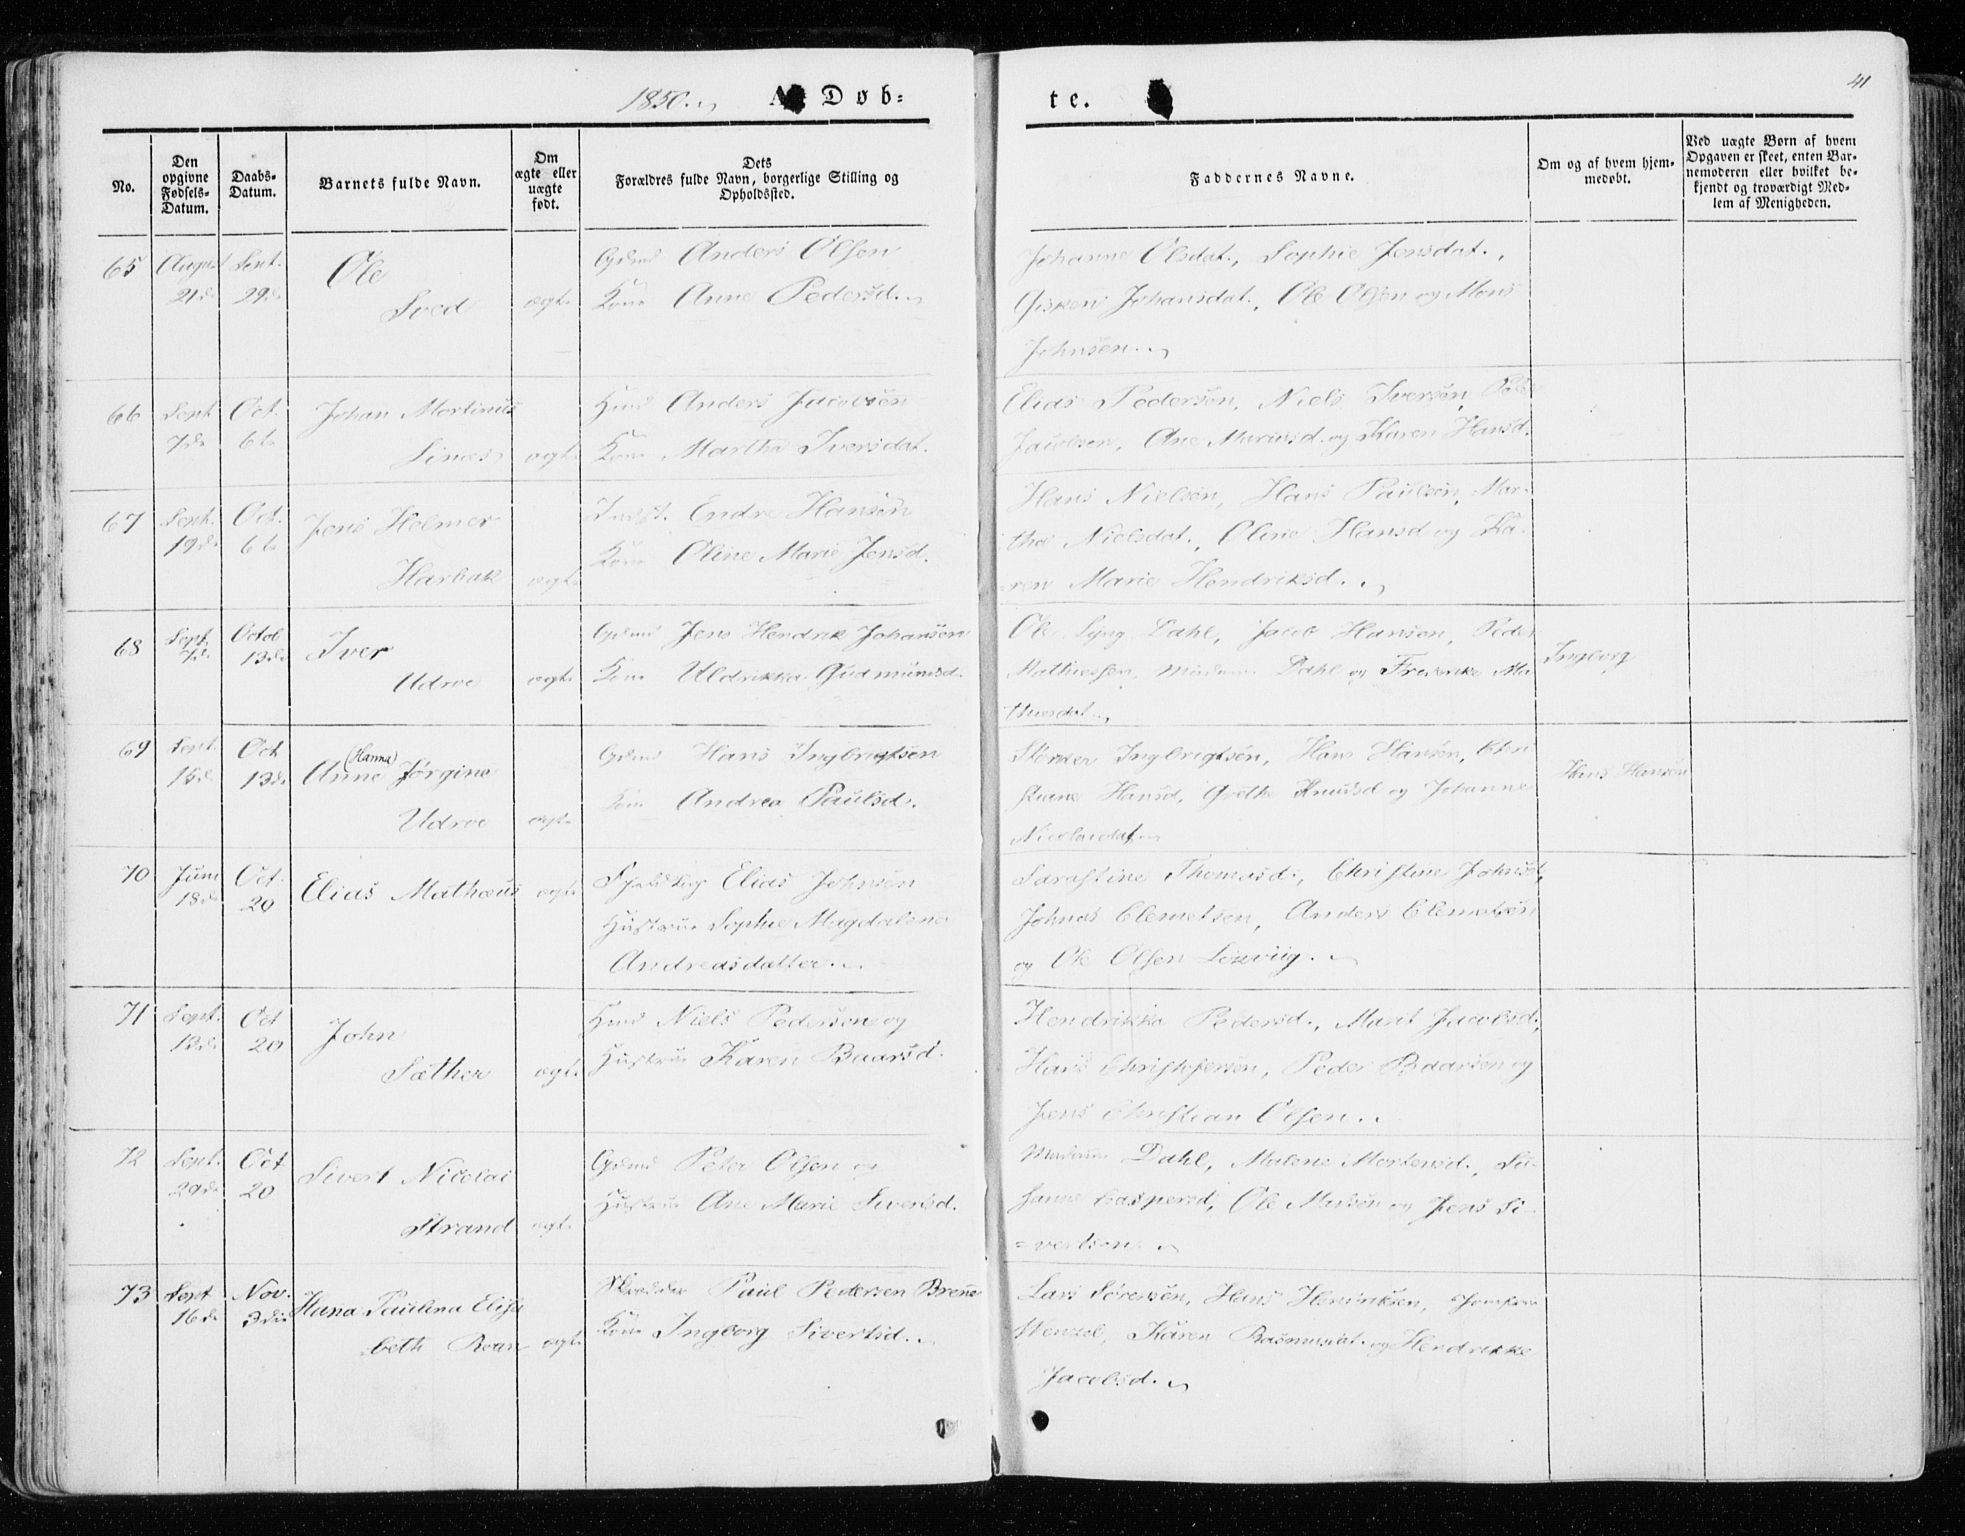 1850. A Døb-
te.
41
No.
Den opgivne Fødsels-Datum.
Daabs-Datum.
Barnets fulde Navn.
Om ægte eller uægte født.
Dets Forældres fulde Navn, borgerlige Stilling og Opholdssted.
Faddernes Navne.
Om og af hvem hjem-medøbt.
Ved uægte Børn af hvem Opgaven er skeet, enten Bar-nemoderen eller hvilket be-kjendt og troværdigt Med-lem af Menigheden.
65 August Sept. Ole Gdmd Anders Olsen Johanne Olsdat., Sophie Jensdat.,
21de 29de Sved ægte Kone Anne Pedersd. Gisken Johansdat., Ole Olsen og Mons
Johnsen.
66 Sept Oct. Johan Martinus Hmd Anders Jacobsen Elias Pedersen, Niels Iversen,
7de 6te Sines ægte Kone Martha Iversdat. Jacobsen, Ane Mariusd. og Karen Hansd.
67 Sept. Oct. Jens Helmer Indst. Endre Hansen Hans Nielsen, Hans Paulsen, Mar-
19de 6te Harbak ægte Kone Oline Marie Jensd. tha Nielsdat., Oline Hansd og Ka-
ren Marie Hendriksd.
68 Sept. Octob Iver Gdmd Jens Hendrik Johansen Ole Lyng Dahl, Jacob Hansen, Peder Ingeborg
7de 13de Udroe ægte Kone Uldrikka Gudmundsd. Mathiessen, Madam Dahl og Frederikke Ma
thiesdat.
69 Sept. Oct Anne (Hanna) Jørgine Gdmd Hans Ingbrigtsen Størker Ingbrigtsen, Hans Hansen, Chri Hans Hansen
15de 13de Udroe ægte Kone Andrea Paulsd. stiane Hansd, Grethe Knudsd og Johanna
Nicolaidat.
70 Juni Oct. Elias Mathæus ægte Elias Johnsen Sarastine Thomasd., Christine Johnsd.,
18de 20 Hustrue Sophie Magdalene Johnas Clemetsen, Anders Clemetsen
Andreasdatter. og Ole Olsen
71 Sept. Oct John Hmd Niels Pedersen og Hendrikka Pedersd., Marit Jacobsd.,
13de 20 Sæther ægte Hustrue Karen Baarsd. Hans Christofersen, Peder Baarsen og
Jens Christian Olsen.
72 Sept. Oct Sivert Nicolai Gdmd Peter Olsen og Madam Dahl, Malene Mortensd., Su-
29de 20 Strand ægte Hustrue Ane Marie Siversd. sanne Caspersd, Ole Madsen og Jens Si-
=vertsen.
73 Sept Nov. Hana Paulina Elisa Skrædder Paul Pedersen Brene Lars Sørensen, Hans Hendriksen, Jomfrue
16de 3die beth Roan ægte Kone Ingborg Sivertsd. Wensel, Karen Rasmusdat. og Hendrikke
Jacobsd.